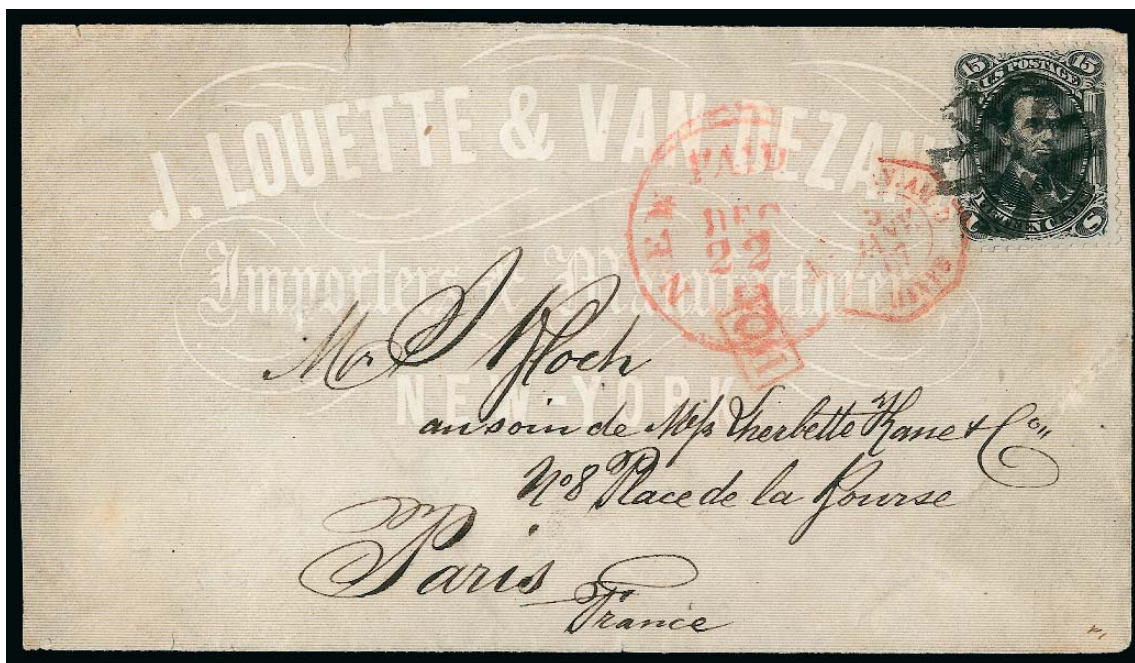 J. LOUETTE & VAN DEZAN
Importers & Manufacturers,
NEW-YORK
15 15
U.S POSTAGE
NEW PAID
DEC
22
PD
Mr J Hoch
au soin de Mess Therbette Kane & Co
No 8 Place de la Bourse
Paris
France